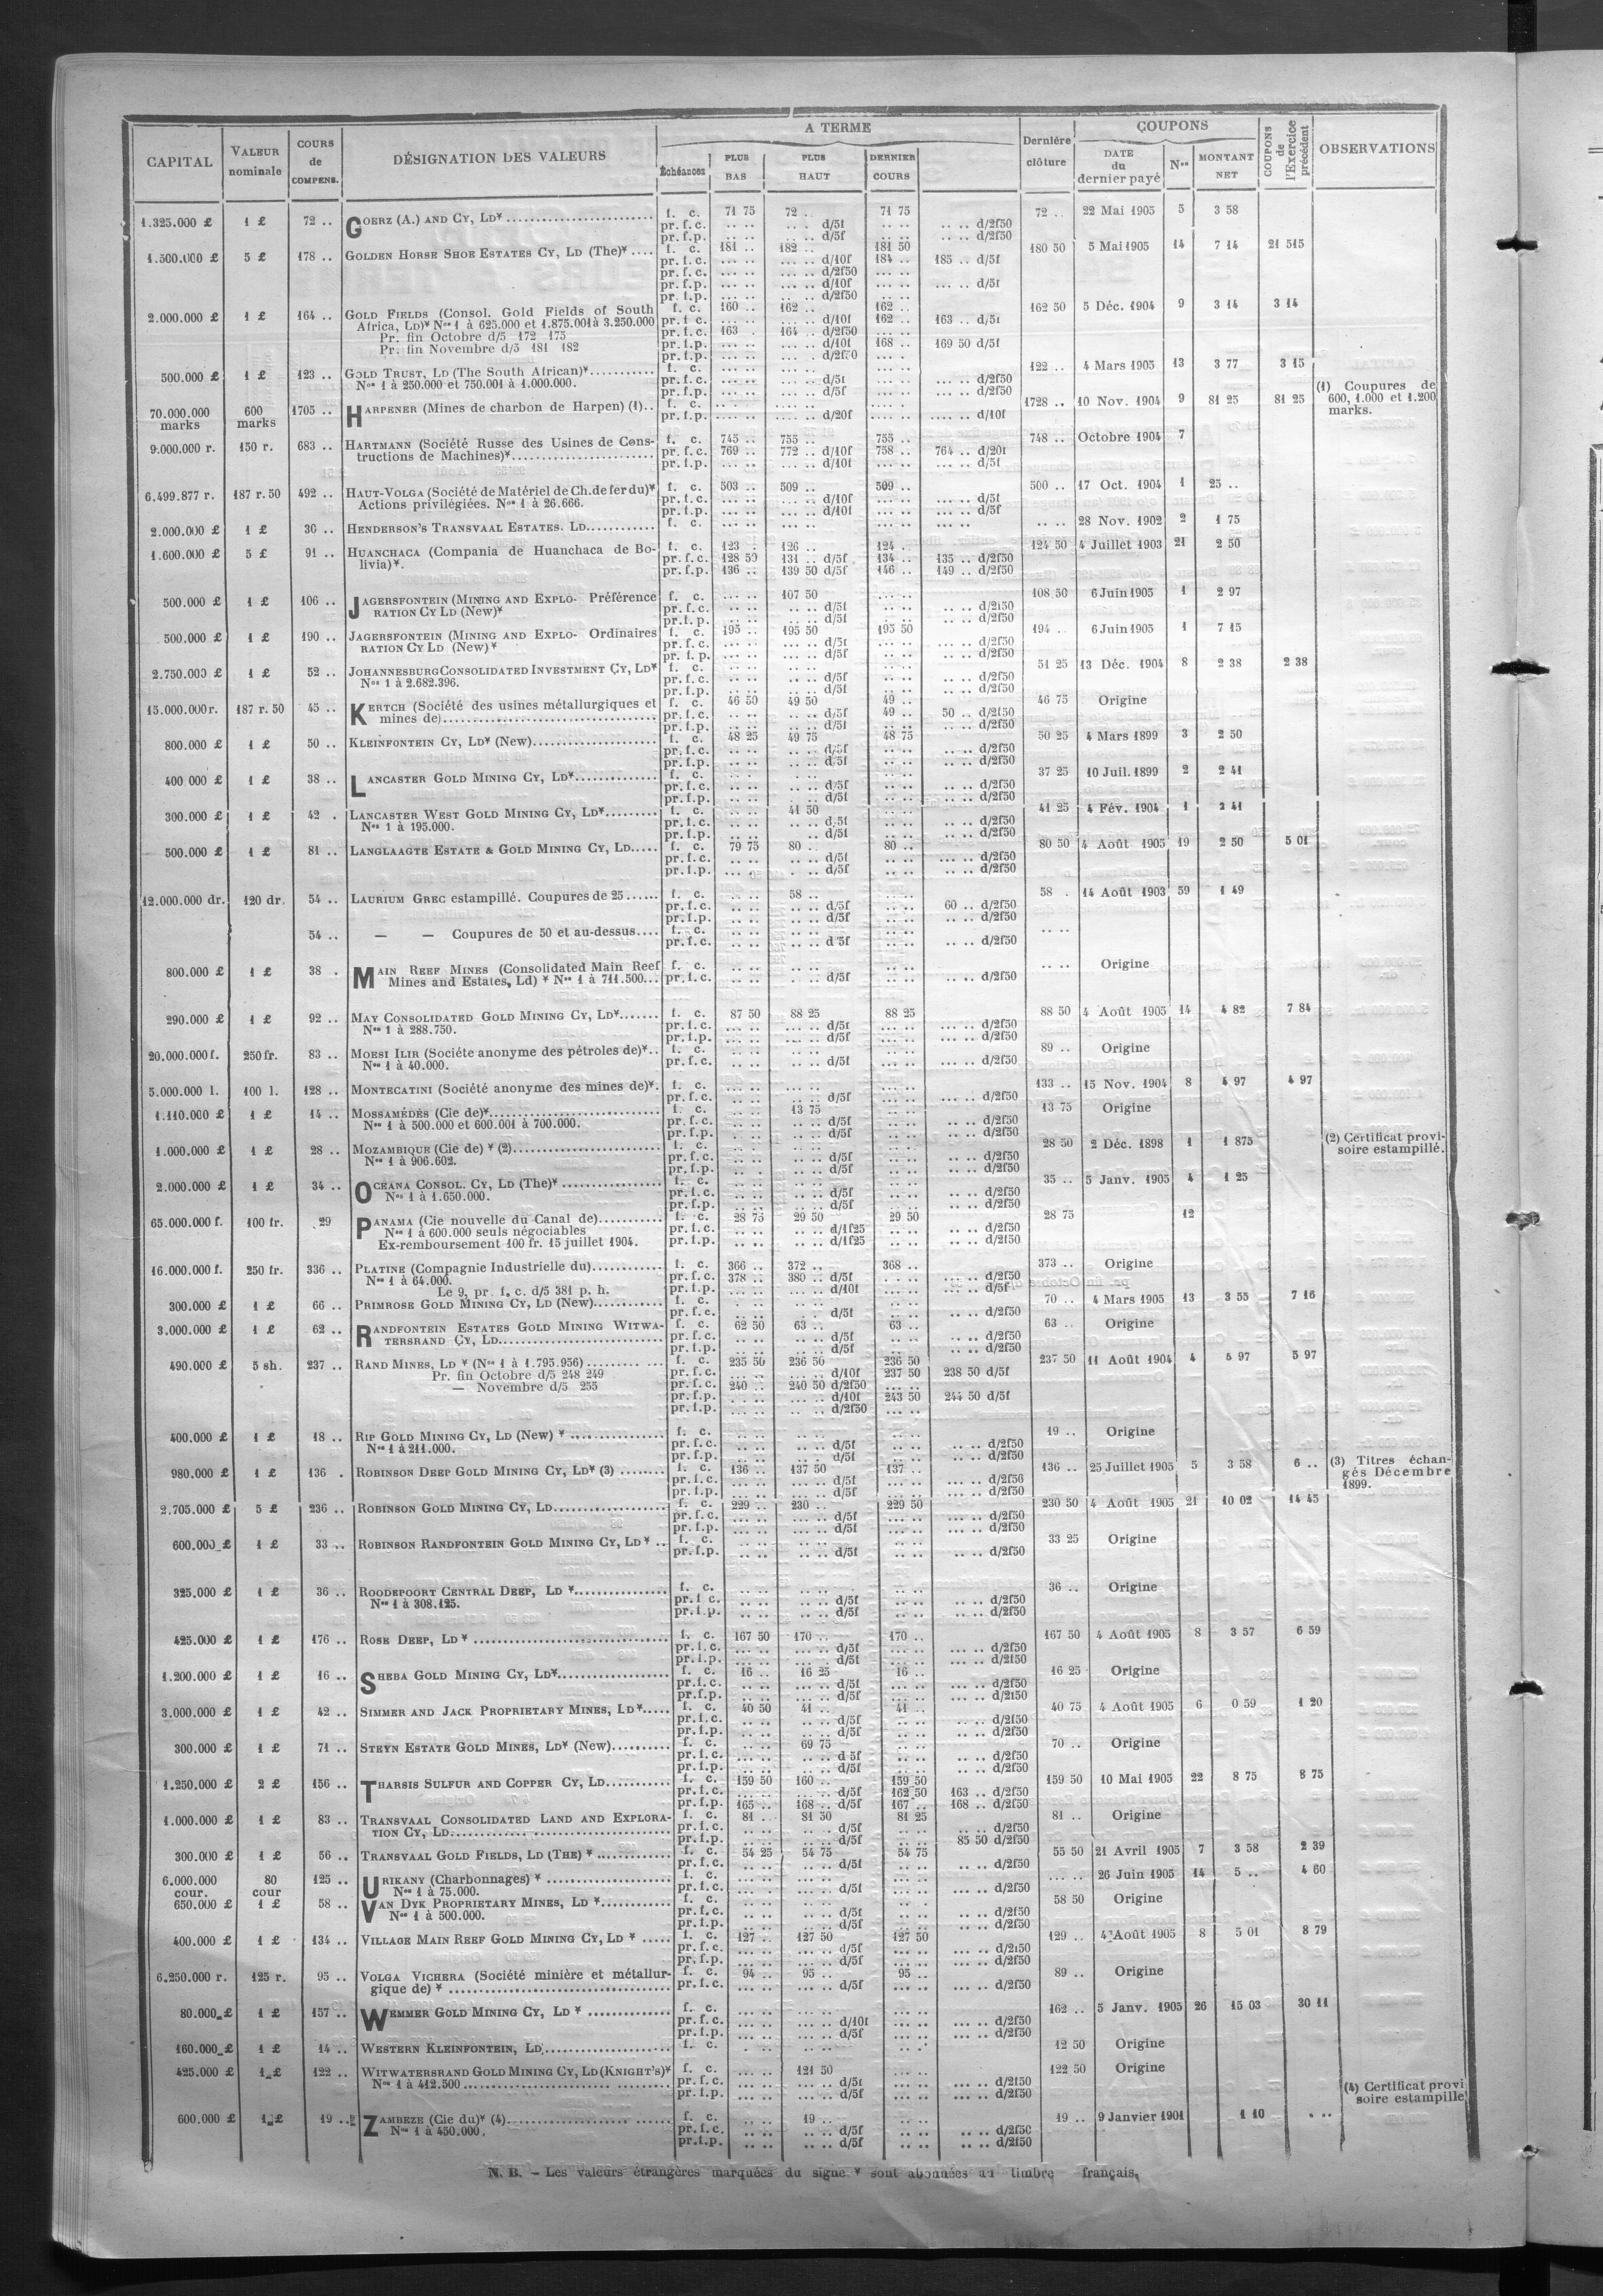 A TERME
COUPONS
CAPITAL VALEUR nominale COURS de COMPENS. DÉSIGNATION DES VALEURS Échéances PLUS BAS PLUS HAUT DERNIER COURS Dernière clôture DATE du dernier payé Nos MONTANT NET COUPONS de l'Exercice précédent OBSERVATIONS
1.325.000 £ 1 £ 72 .. GOERZ (A.) AND CY, LD* f. c. 71 75 72 .. 71 75 72 .. 22 Mai 1905 5 3 58
pr. f. c. d/5f d/2f50
pr. f. p. d/5f d/2f50
1.500.000 £ 5 £ 178 .. GOLDEN HORSE SHOE ESTATES CY, LD (The)* f. c. 181 .. 182 .. 181 50 180 50 5 Mai 1905 14 7 14 21 515
pr. f. c. d/10f 184 .. 185 .. d/5f
pr. f. c. d/2f50
pr. f. p. d/10f d/5f
pr. f. p. d/2f50
2.000.000 £ 1 £ 164 .. GOLD FIELDS (Consol. Gold Fields of South f. c. 160 .. 162 .. 162 .. 162 50 5 Déc. 1904 9 3 14 3 14
Africa, LD)* Nos 1 à 625.000 et 1.875.001 à 3.250.000 pr. f. c. d/10f 162 .. 163 .. d/5f
Pr. fin Octobre d/5 172 175 pr. f. c. 163 164 .. d/2f50
Pr. fin Novembre d/5 181 182 pr. f. p. d/10f 168 .. 169 50 d/5f
pr. f. p. d/2f50
500.000 £ 1 £ 123 .. GOLD TRUST, LD (The South African)* f. c. 122 .. 4 Mars 1905 13 3 77 3 15
Nos 1 à 250.000 et 750.001 à 1.000.000. pr. f. c. d/5f d/2f50
pr. f. p. d/5f d/2f50
(1) Coupures de 600, 1.000 et 1.200 marks.
70.000.000 marks 600 marks 1705 .. HARPENER (Mines de charbon de Harpen) (1).. f. c. 1728 .. 10 Nov. 1904 9 81 25 81 25
pr. f. c. d/20f d/10f
9.000.000 r. 150 r. 683 .. HARTMANN (Société Russe des Usines de Cons- f. c. 745 .. 755 .. 755 .. 748 .. Octobre 1904 7
tructions de Machines)* pr. f. c. 769 .. 772 .. d/10f 758 .. 764 .. d/20f
pr. f. p. d/10f d/5f
6.499.877 r. 187 r. 50 492 .. HAUT-VOLGA (Société de Matériel de Ch. de fer du)* f. c. 503 .. 509 .. 509 .. 500 .. 17 Oct. 1904 1 25 ..
Actions privilégiées. Nos 1 à 26.666. pr. f. c. d/10f d/5f
pr. f. p. d/10f d/5f
2.000.000 £ 1 £ 36 .. HENDERSON'S TRANSVAAL ESTATES. LD f. c. 28 Nov. 1902 2 1 75
1.600.000 £ 5 £ 91 .. HUANCHACA (Compania de Huanchaca de Bo- f. c. 123 .. 126 .. 124 .. 124 50 4 Juillet 1903 21 2 50
livia)*. pr. f. c. 128 50 131 .. d/5f 134 .. 135 .. d/2f50
pr. f. p. 136 .. 139 50 d/5f 146 .. 149 .. d/2f50
500.000 £ 1 £ 106 .. JAGERSFONTEIN (MINING AND EXPLO- Préférence f. c. 107 50 108.50 6 Juin 1905 1 2 97
RATION CY LD (New)* pr. f. c. d/5f d/2f50
pr. f. p. d/5f d/2f50
500.000 £ 1 £ 190 .. JAGERSFONTEIN (MINING AND EXPLO- Ordinaires f. c. 195 .. 195 50 195 50 194 .. 6 Juin 1905 1 7 15
RATION CY LD (New)* pr. f. c. d/5f d/2f50
pr. f. p. d/5f d/2f50
2.750.000 £ 1 £ 52 .. JOHANNESBURG CONSOLIDATED INVESTMENT CY, LD* f. c. 51 25 13 Déc. 1904 8 2 38 2 38
Nos 1 à 2.682.396. pr. f. c. d/5f d/2f50
pr. f. p. d/5f d/2f50
15.000.000 r. 187 r. 50 45 .. KERTCH (Société des usines métallurgiques et f. c. 46 50 49 50 49 .. 46 75 Origine
mines de) pr. f. c. d/5f 49 .. 50 .. d/2f50
pr. f. p. d/5f d/2f50
800.000 £ 1 £ 50 .. KLEINFONTEIN CY, LD* (New) f. c. 48 25 49 75 48 75 50 25 4 Mars 1899 3 2 50
pr. f. c. d/5f d/2f50
pr. f. p. d/5f d/2f50
400 000 £ 1 £ 38 .. LANCASTER GOLD MINING CY, LD* f. c. 37 25 10 Juil. 1899 2 2 41
pr. f. c. d/5f d/2f50
pr. f. p. d/5f d/2f50
300.000 £ 1 £ 42 . LANCASTER WEST GOLD MINING CY, LD* f. c. 41 50 41 25 4 Fév. 1904 1 2 41
Nos 1 à 195.000. pr. f. c. d/5f d/2f50
pr. f. p. d/5f d/2f50
500.000 £ 1 £ 81 .. LANGLAAGTE ESTATE & GOLD MINING CY, LD f. c. 79 75 80 .. 80 .. 80 50 4 Août 1905 19 2 50 5 01
pr. f. c. d/5f d/2f50
pr. f. p. d/5f d/2f50
12.000.000 dr. 120 dr. 54 .. LAURIUM GREC estampillé. Coupures de 25 f. c. 58 .. 58 . 14 Août 1903 59 1 49
pr. f. c. d/5f 60 .. d/2f50
pr. f. p. d/5f d/2f50
54 .. — — Coupures de 50 et au-dessus f. c.
pr. f. c. d 5f d/2f50
800.000 £ 1 £ 38 . MAIN REEF MINES (Consolidated Main Reef f. c. Origine
Mines and Estates, Ld) * Nos 1 à 711.500 pr. f. c. d/5f d/2f50
290.000 £ 1 £ 92 .. MAY CONSOLIDATED GOLD MINING CY, LD* f. c. 87 50 88 25 88 25 88 50 4 Août 1905 14 4 82 7 84
Nos 1 à 288.750. pr. f. c. d/5f d/2f50
pr. f. p. d/5f d/2f50
20.000.000 f. 250 fr. 83 .. MOESI ILIR (Sociéte anonyme des pétroles de)* f. c. 89 .. Origine
Nos 1 à 40.000. pr. f. c. d/5f d/2f50
5.000.000 l. 100 l. 128 .. MONTECATINI (Société anonyme des mines de)*. f. c. 133 .. 15 Nov. 1904 8 4 97 4 97
pr. f. c. d/5f d/2f50
1.110.000 £ 1 £ 14 .. MOSSAMÉDÈS (Cie de)* f. c. 13 75 13 75 Origine
Nos 1 à 500.000 et 600.001 à 700.000. pr. f. c. d/5f d/2f50
pr. f. p. d/5f d/2f50
1.000.000 £ 1 £ 28 .. MOZAMBIQUE (Cie de) * (2) f. c. 28 50 2 Déc. 1898 1 1 875 (2) Certificat provi-
Nos 1 à 906.602. pr. f. c. d/5f d/2f50 soire estampillé.
pr. f. p. d/5f d/2f50
2.000.000 £ 1 £ 34 .. OCEANA CONSOL. CY, LD (The)* f. c. 35 .. 5 Janv. 1905 4 1 25
Nos 1 à 1.650.000. pr. f. c. d/5f d/2f50
pr. f. p. d/5f d/2f50
65.000.000 f. 100 fr. 29 PANAMA (Cie nouvelle du Canal de) f. c. 28 75 29 50 29 50 28 75 12
Nos 1 à 600.000 seuls négociables pr. f. c. d/1f25 d/2f50
Ex-remboursement 100 fr. 15 juillet 1904. pr. f. p. d/1f25 d/2f50
16.000.000 f. 250 fr. 336 .. PLATINE (Compagnie Industrielle du) f. c. 366 .. 372 .. 368 .. 373 .. Origine
Nos 1 à 64.000. pr. f. c. 378 .. 380 .. d/5f d/2f50
Le 9, pr. f. c. d/5 381 p. h. pr. f. p. d/10f d/5f
300.000 £ 1 £ 66 .. PRIMROSE GOLD MINING CY, LD (New) f. c. 70 .. 4 Mars 1905 13 3 55 7 16
pr. f. c. d/5f d/2f50
3.000.000 £ 1 £ 62 .. RANDFONTEIN ESTATES GOLD MINING WITWA- f. c. 62 50 63 .. 63 .. 63 .. Origine
TERSRAND CY, LD pr. f. c. d/5f d/2f50
pr. f. p. d/5f d/2f50
490.000 £ 5 sh. 237 .. RAND MINES, LD * (Nos 1 à 1.795.956) f. c. 235 50 236 50 236 50 237 50 11 Août 1904 4 5 97 5 97
Pr. fin Octobre d/5 248 249 pr. f. c. d/10f 237 50 238 50 d/5f
— Novembre d/5 255 pr. f. c. 240 .. 240 50 d/2f50
pr. f. p. d/10f 243 50 244 50 d/5f
pr. f. p. d/2f50
400.000 £ 1 £ 18 .. RIP GOLD MINING CY, LD (New) * f. c. 19 .. Origine
Nos 1 à 211.000. pr. f. c. d/5f d/2f50
pr. f. p. d/5f d/2f50
980.000 £ 1 £ 136 . ROBINSON DEEP GOLD MINING CY, LD* (3) f. c. 136 .. 137 50 137 .. 136 .. 25 Juillet 1905 5 3 58 6 .. (3) Titres échan-
pr. f. c. d/5f d/2f50 gés Décembre
pr. f. p. d/5f d/2f50 1899.
2.705.000 £ 5 £ 236 .. ROBINSON GOLD MINING CY, LD f. c. 229 .. 230 .. 229 50 230 50 4 Août 1905 21 10 02 14 45
pr. f. c. d/5f d/2f50
pr. f. p. d/5f d/2f50
600.000 £ 1 £ 33 .. ROBINSON RANDFONTEIN GOLD MINING CY, LD * f. c. 33 25 Origine
pr. f. p. d/5f d/2f50
325.000 £ 1 £ 36 .. ROODEPOORT CENTRAL DEEP, LD * f. c. 36 .. Origine
Nos 1 à 308.125. pr. f. c. d/5f d/2f50
pr. f. p. d/5f d/2f50
425.000 £ 1 £ 176 .. ROSE DEEP, LD * f. c. 167 50 170 .. 170 .. 167 50 4 Août 1905 8 3 57 6 59
pr. f. c. d/5f d/2f50
pr. f. p. d/5f d/2f50
1.200.000 £ 1 £ 16 .. SHEBA GOLD MINING CY, LD* f. c. 16 .. 16 25 16 .. 16 25 Origine
pr. f. c. d/5f d/2f50
pr. f. p. d/5f d/2f50
3.000.000 £ 1 £ 42 .. SIMMER AND JACK PROPRIETARY MINES, LD* f. c. 40 50 41 .. 41 .. 40 75 4 Août 1905 6 0 59 1 20
pr. f. c. d/5f d/2f50
pr. f. p. d/5f d/2f50
300.000 £ 1 £ 71 .. STEYN ESTATE GOLD MINES, LD* (New) f. c. 69 75 70 .. Origine
pr. f. c. d 5f d/2f50
pr. f. p. d/5f d/2f50
1.250.000 £ 2 £ 156 .. THARSIS SULFUR AND COPPER CY, LD f. c. 159 50 160 .. 159 50 159 50 10 Mai 1905 22 8 75 8 75
pr. f. c. d/5f 162 50 163 .. d/2f50
pr. f. p. 165 .. 168 .. d/5f 167 .. 168 .. d/2f50
1.000.000 £ 1 £ 83 .. TRANSVAAL CONSOLIDATED LAND AND EXPLORA- f. c. 81 .. 81 50 81 25 81 .. Origine
TION CY, LD pr. f. c. d/5f d/2f50
pr. f. p. d/5f 85 50 d/2f50
300.000 £ 1 £ 56 .. TRANSVAAL GOLD FIELDS, LD (THE) * f. c. 54 25 54 75 54 75 55 50 21 Avril 1905 7 3 58 2 39
pr. f. c. d/5f d/2f50
6.000.000 cour. 80 cour 125 .. URIKANY (Charbonnages) * f. c. 26 Juin 1905 14 5 .. 4 60
Nos 1 à 75.000. pr. f. c. d/5f d/2f50
650.000 £ 1 £ 58 .. VAN DYK PROPRIETARY MINES, LD * f. c. 58 50 Origine
Nos 1 à 500.000. pr. f. c. d/5f d/2f50
pr. f. p. d/5f d/2f50
400.000 £ 1 £ 134 .. VILLAGE MAIN REEF GOLD MINING CY, LD * f. c. 127 .. 127 50 127 50 129 .. 4 Août 1905 8 5 01 8 79
pr. f. c. d/5f d/2f50
pr. f. p. d/5f d/2f50
6.250.000 r. 125 r. 95 .. VOLGA VICHERA (Société minière et métallur- f. c. 94 .. 95 .. 95 .. 89 .. Origine
gique de) * pr. f. c. d/5f d/2f50
80.000 £ 1 £ 157 .. WEMMER GOLD MINING CY, LD * f. c. 162 .. 5 Janv. 1905 26 15 03 30 11
pr. f. c. d/10f d/2f50
pr. f. p. d/5f d/2f50
160.000 £ 1 £ 14 .. WESTERN KLEINFONTEIN, LD f. c. 12 50 Origine
425.000 £ 1 £ 122 .. WITWATERSRAND GOLD MINING CY, LD (KNIGHT'S)* f. c. 121 50 122 50 Origine
Nos 1 à 412.500 pr. f. c. d/5f d/2f50
pr. f. p. d/5f d/2f50
(4) Certificat provi
soire estampillé
600.000 £ 1 £ 19 .. ZAMBEZE (Cie du)* (4) f. c. 19 .. 19 .. 9 Janvier 1901 1 10
Nos 1 à 450.000. pr. f. c. d/5f d/2f50
pr. f. p. d/5f d/2f50
N. B. – Les valeurs étrangères marquées du signe * sont abonnées au timbre français.